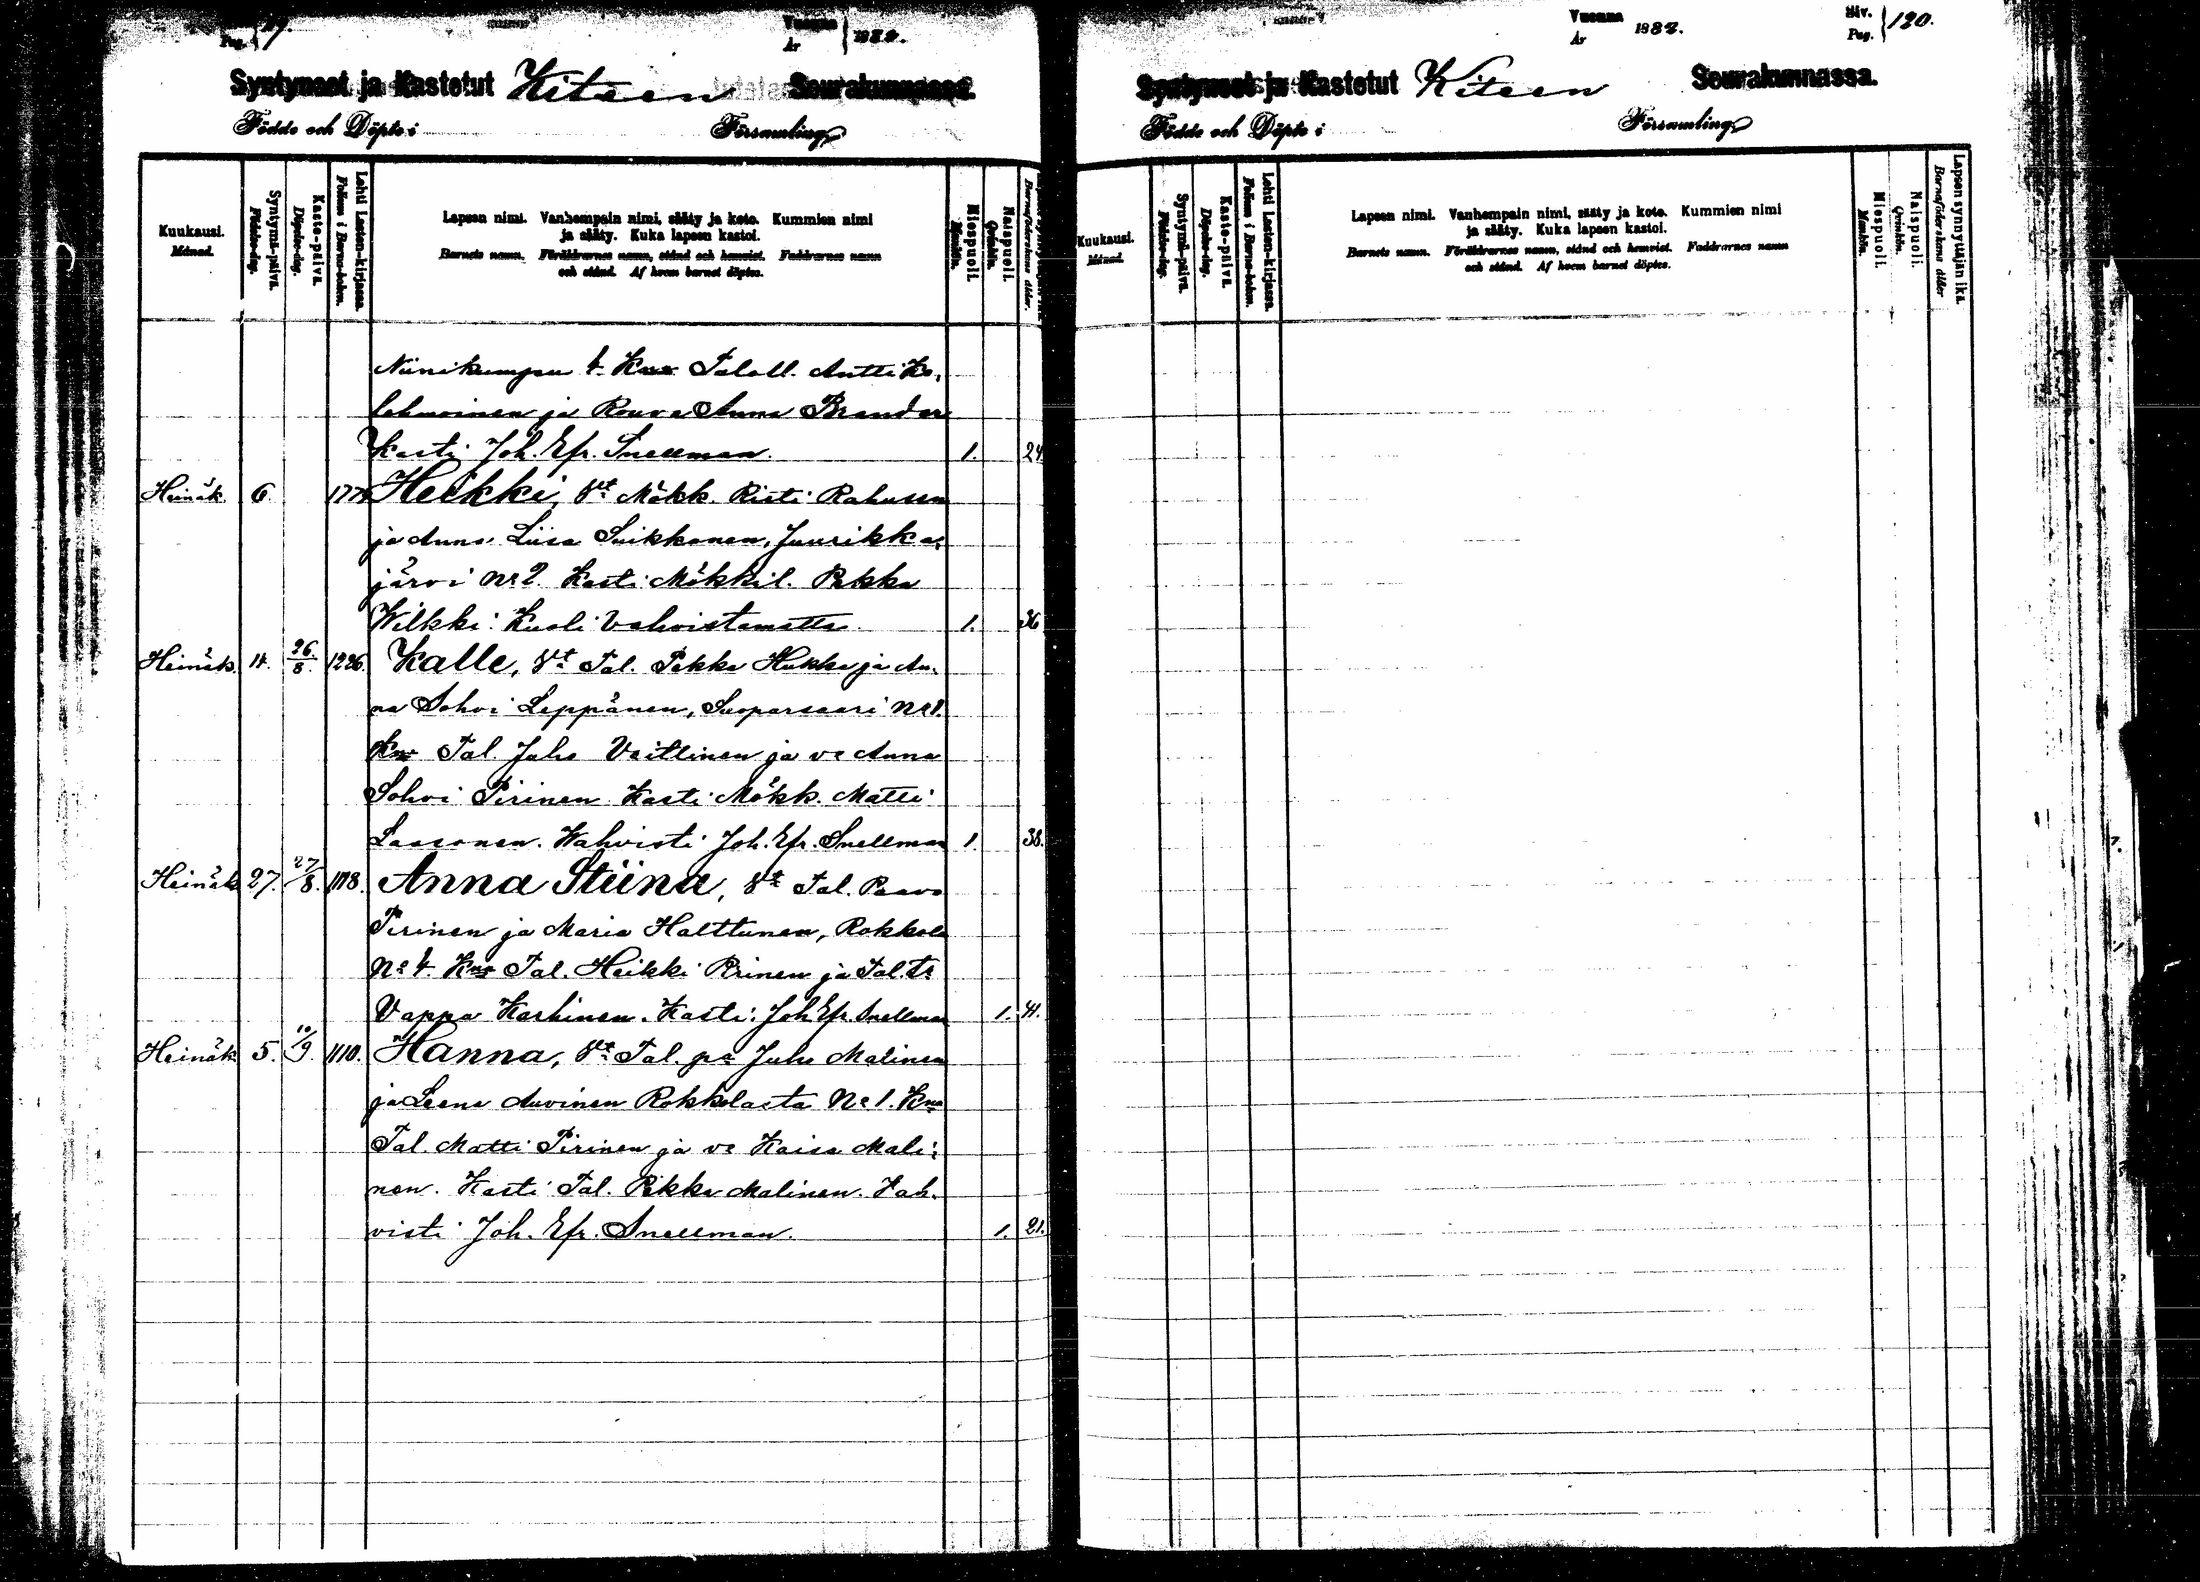 Vuonna
År 1882.
Syntyneet ja Kastetut Kiteen Seurakunnassa.
Födde och Döpte i Församling
Kuukausi.
Månad.
Syntymä-päivä.
Födelse-dag.
Kaste-päivä.
Döpelse-dag.
Lehti Lasten-kirjassa.
Folium i Barna-boken.
Lapsen nimi. Vanhempain nimi, sääty ja koto. Kummien nimi
ja sääty. Kuka lapsen kastoi.
Barnets namn. Föräldrarnes namn, stånd och hemvist. Faddrarnes namn
och stånd. Af hvem barnet döptes.
Miespuoli.
Mankön.
Naispuoli.
Qvinkön.
Niinikumpu 4. Kno Taloll. Antti Ko,
lehmoinen ja Rouva Anna Brander
Kasti Joh. Efr. Snellman. 1. 24
Heinäk. 6. 177 Heikki, Vt Mökk. Risti Rahunen
ja Anna Liisa Suikkanen, Juurikka,
järvi No 2. Kasti Mökkil. Pekka
Wilkki. Kuoli vahvistamatta. 1. 36
Heinäk. 14. 26/8. 1226. Kalle, Vt Tal. Pekka Hukka ja An,
na Sohvi Leppänen, Suoparsaari No 1.
Kno Tal. Juho Vaittinen ja vo Anna
Sohvi Pirinen Kasti Mökk. Matti
Sassonen. Wahvisti Joh. Efr. Snellman 1. 38.
Heinäk. 27. 27/8. 1118. Anna Stiina, Vt Tal. Paavo
Pirinen ja Maria Halttunen, Rokkola
No 4. Kno Tal. Heikki Pirinen ja Tal. Tr
Vappu Karhinen. Kasti: Joh Efr. Snellman 1. 41.
Heinäk. 5. 10/9. 1110. Hanna, Vt Tal. pa Juho Malinen
ja Leena Auvinen Rokkolasta No 1. Kno
Tal. Matti Pirinen ja vo Kaisa Mali,
nen. Kasti Tal. Pekka Malinen. Vah,
visti Joh. Efr. Snellman. 1. 21.
Vuonna
År 1882.
Siv.
Pag. 120.
Syntyneet ja Kastetut Kiteen Seurakunnassa.
Födde och Döpte i Församling
Kuukausi.
Månad.
Syntymä-päivä.
Födelse-dag.
Kaste-päivä.
Döpelse-dag.
Lehti Lasten-kirjassa.
Folium i Barna-boken.
Lapsen nimi. Vanhempain nimi, sääty ja koto. Kummien nimi
ja sääty. Kuka lapsen kastoi.
Barnets namn. Föräldrarnes namn, stånd och hemvist. Faddrarnes namn
och stånd. Af hvem barnet döptes.
Miespuoli.
Mankön.
Naispuoli.
Qvinkön.
Lapsen synnyttäjän ikä.
Barnaföderskans ålder